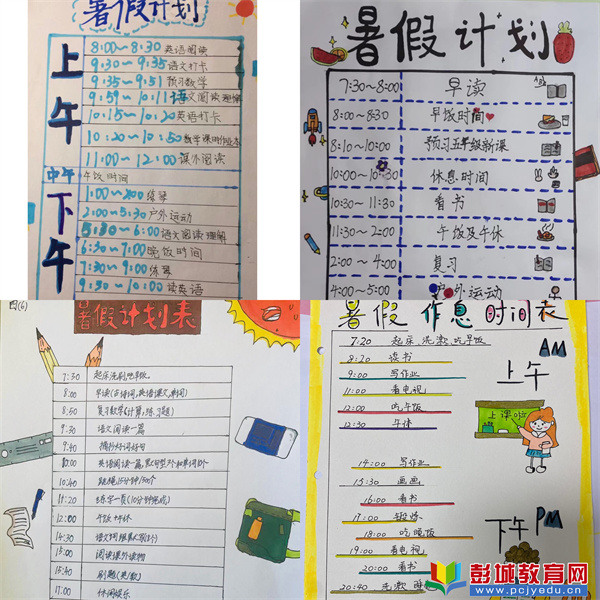 暑假计划
上午
8:00~8:30 英语阅读
9:30~9:35 语文打卡
9:35~9:51 预习数学
9:59~10:11 语文阅读理解
10:15~10:20 英语打卡
10:20~10:50 数学课时作业本
11:00~12:00 课外阅读
中午 午饭时间
下午
1:00~2:00 练琴
2:00~5:30 户外运动
5:30~6:00 语文阅读理解
6:30~7:00 晚饭时间
7:30~9:00 练琴
9:30~10:00 读英语
暑假计划
7:30~8:00 早读
8:00~8:30 早饭时间
8:10~10:00 预习五年级新课
10:00~10:30 休息时间
10:30~11:30 看书
11:30~2:00 午饭及午休
2:00~4:00 复习
4:00~5:00 户外运动
四(6)
暑假计划表
7:30 起床洗刷吃早饭
8:00
8:50
9:30 语文阅读一篇
9:40 摘抄好词好句
10:00
10:40
11:20 练字一页(10分钟完成)
12:00 午饭 午休
14:30
15:00 阅读课外读物
15:40
17:00 休闲娱乐
暑假作息时间表
7:20 起床 洗漱 吃早饭
AM
上午
8:20 读书
9:00 写作业
11:00 看电视
12:00 吃午饭
12:30 午休
上课啦
14:00 写作业
15:30 画画
16:00 看书
17:00 锻炼
18:00 吃晚饭
下午 PM
19:00 看电视
20:00 看书
20:40 洗漱
彭城教育网
www.pcjyedu.com